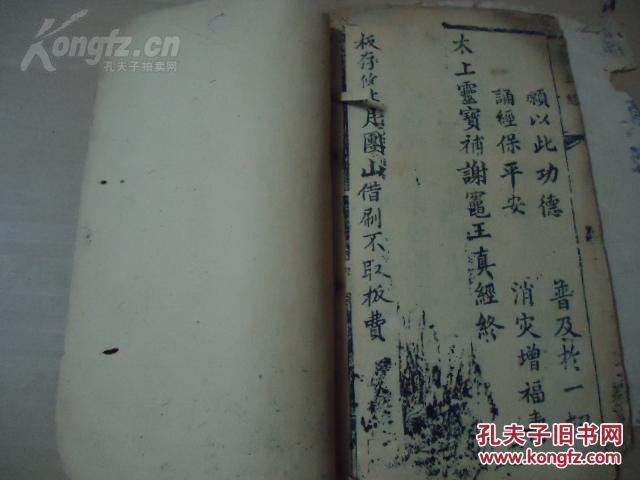 願以此功德 普及於一切
誦經保平安 消灾增福壽
太上靈寶補謝竈王真經終
板存修上月團山借刷不取板費
Kongfz.cn
孔夫子拍卖网
孔夫子旧书网
www.kongfz.com